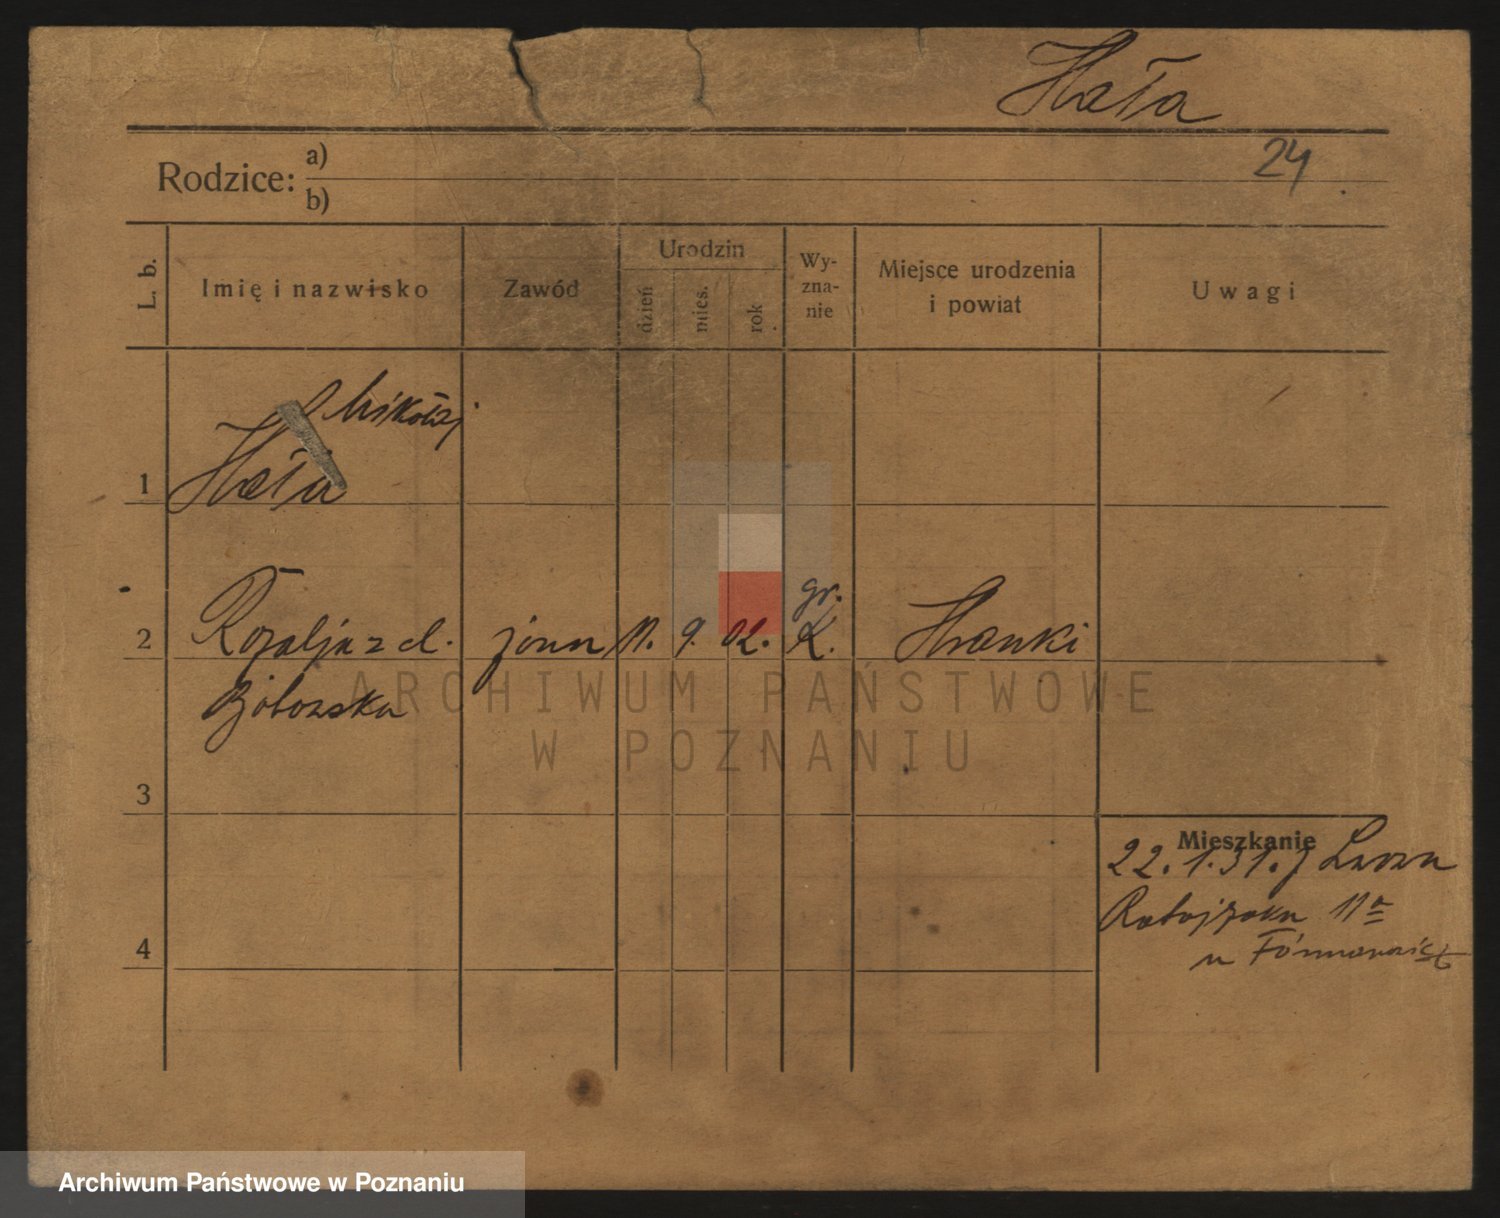 Hała
24
Rodzice: a)
b)
L. b.
Imię i nazwisko
Zawód
Urodzin
dzień
mies.
rok
Wy-
zna-
nie
Miejsce urodzenia
i powiat
Uwagi
Mikołaj
1 Hała
gr.
2 Rozalja z d. żona 11. 9. 02. K. Hranki
3
4
Mieszkanie
22.1.31. z
Ratajczaka 11a
u
ARCHIWUM PAŃSTWOWE
W POZNANIU
Archiwum Państwowe w Poznaniu